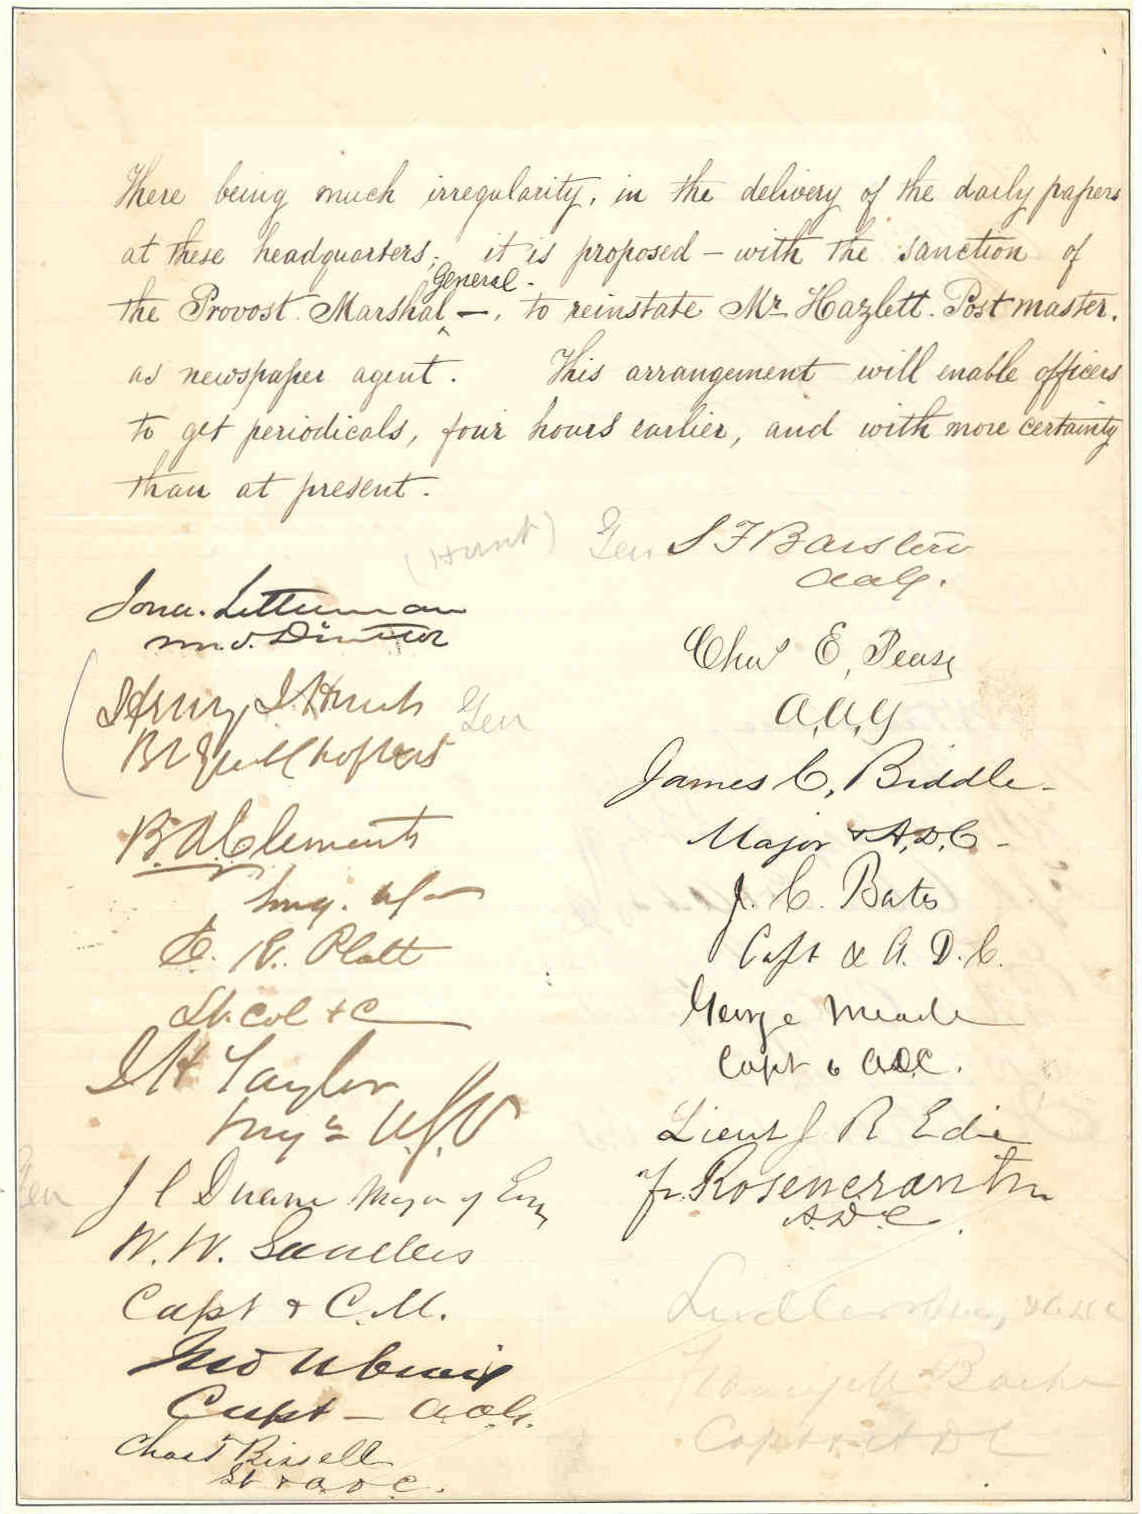 There being much irregularity, in the delivery of the daily papers
at these headquarters, it is proposed – with the sanction of
General.
the Provost. Marshal –. to reinstate Mr Hazlett. Postmaster.
as newspaper agent. This arrangement will enable officers
to get periodicals, four hours earlier, and with more certainty
than at present.
(Hunt)
Gen S F Barstow
aag.
Jona. Letterman
Md. Director
Chas E. Pease
A.A.G
Henry J Hunt Gen
James C. Biddle.
Major & A.D.C –
B. A. Clements
Surg. USA
J. C. Bates
Capt & A. D. C.
E. R. Platt
Lt. Col & C
George Meade
Capt & ADC.
Taylor
Lieut J R Edie
Fr. Rosencrantz
A.D.C.
Gen
J C Duane Major of Eng
W. W. Sanders
Capt & C.M.
Ludlow & ADC
Capt – A.D.C.
Capt & A D C
Chas Bissell
Lt & a D C.